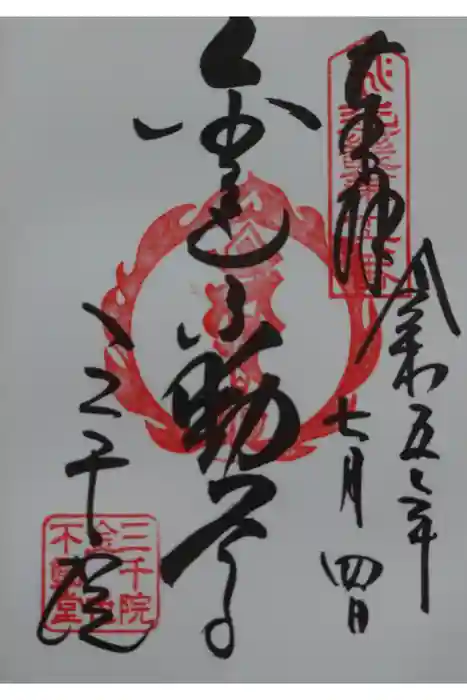 奉拝
令和五年
七月四日
金色不動尊
三千院
三千院
金色
不動堂